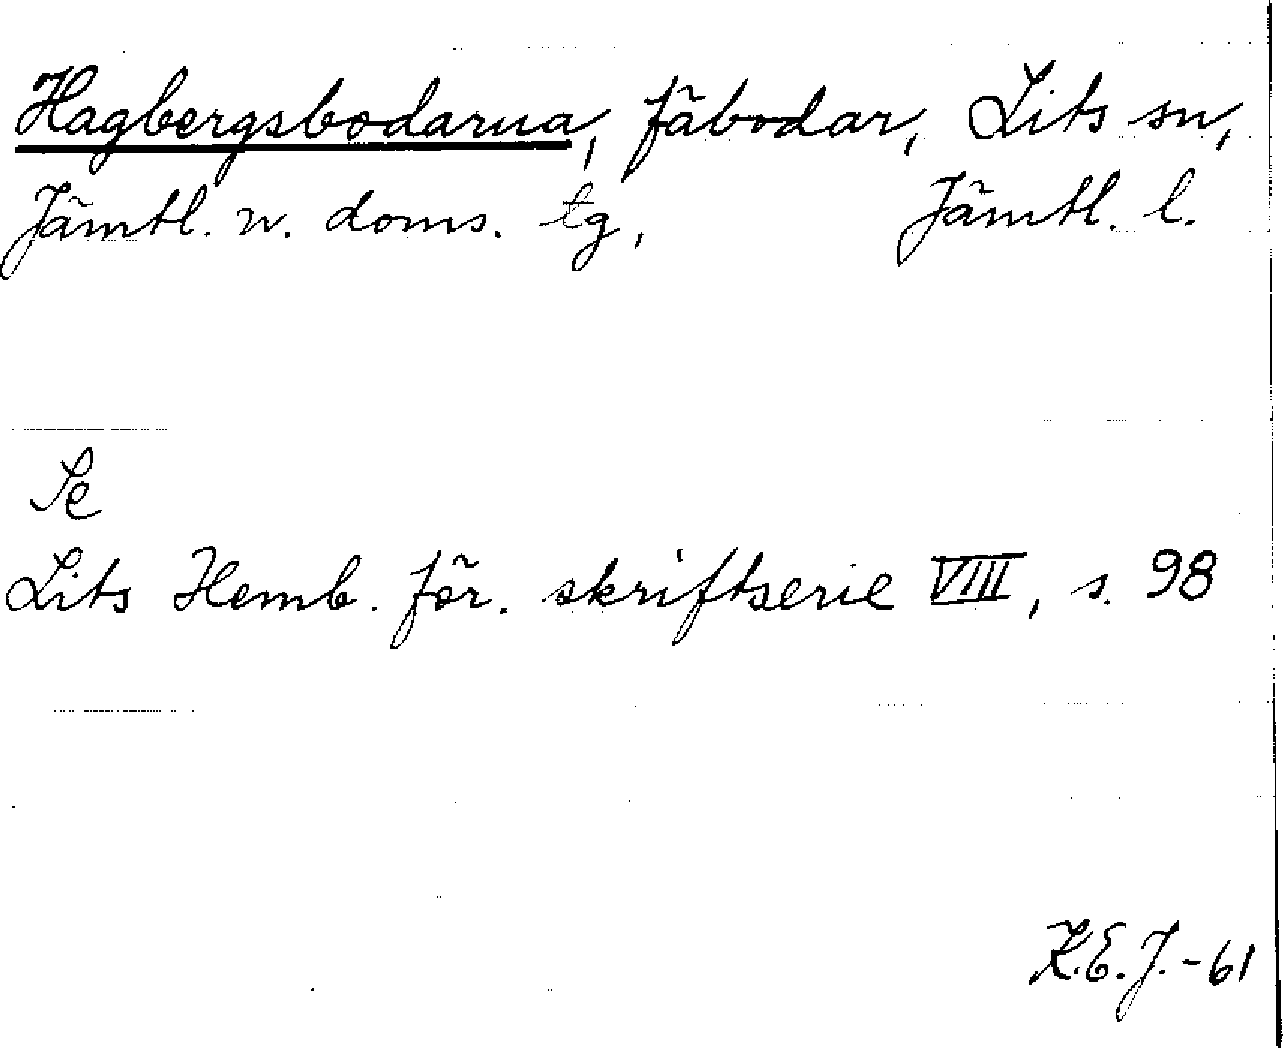 Hagbergsbodarna, fäbodar, Lits sn,
Jämtl. n. doms. tg, Jämtl. l.
Se
Lits Hemb. för. skriftserie VIII, s. 98
K.E.J.-61